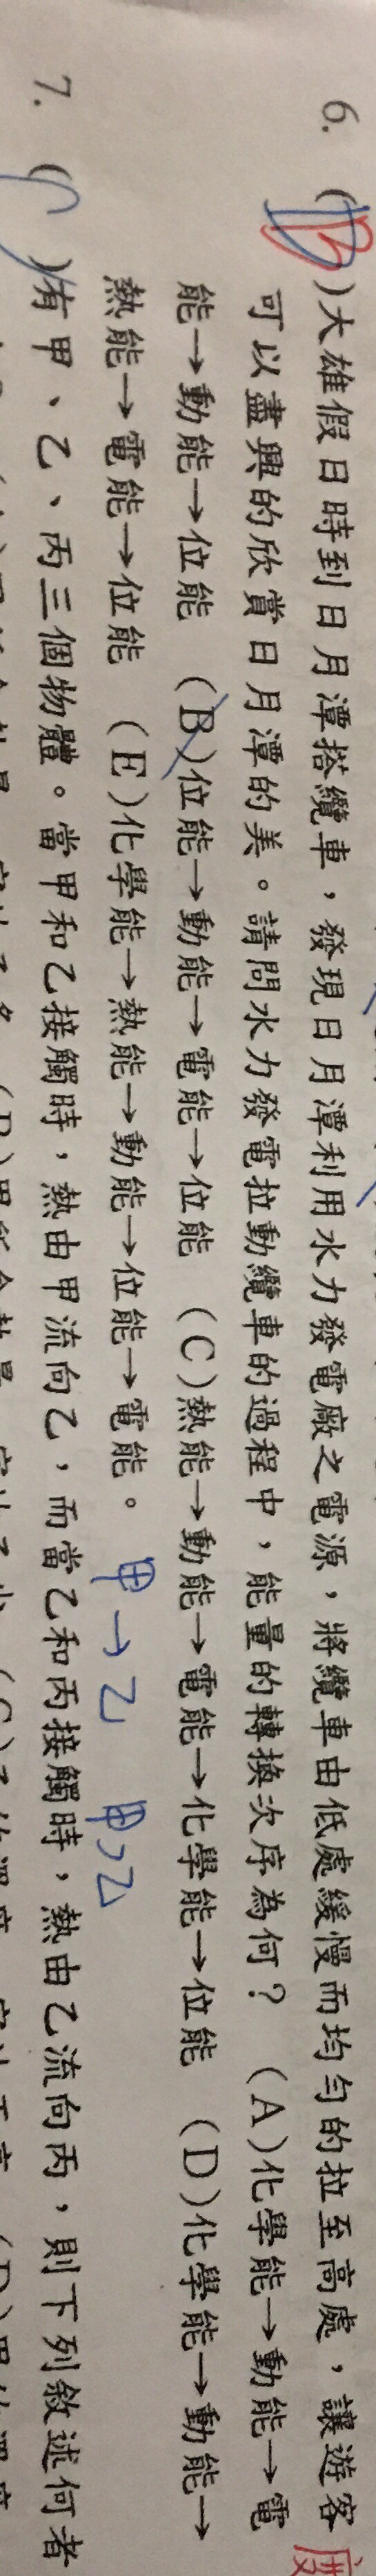 6. (B)大雄假日時到日月潭搭纜車，發現日月潭利用水力發電廠之電源，將纜車由低處緩慢而均勻的拉至高處，讓遊客
可以盡興的欣賞日月潭的美。請問水力發電拉動纜車的過程中，能量的轉換次序為何？ (A)化學能→動能→電
能→動能→位能 (B)位能→動能→電能→位能 (C)熱能→動能→電能→化學能→位能 (D)化學能→動能→
熱能→電能→位能 (E)化學能→熱能→動能→位能→電能。
甲→乙 甲>乙
7. (C)有甲、乙、丙三個物體。當甲和乙接觸時，熱由甲流向乙，而當乙和丙接觸時，熱由乙流向丙，則下列敘述何者